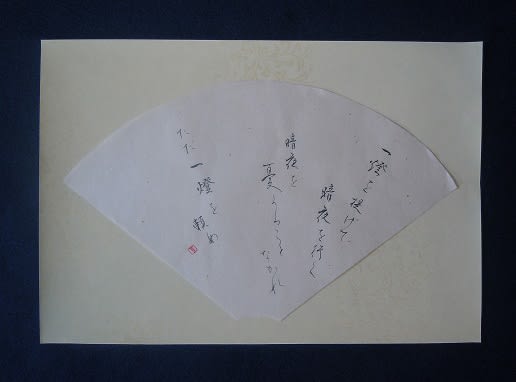 一燈を提げて
暗夜を行く
暗夜を
憂うること
なかれ
ただ
一燈を頼め